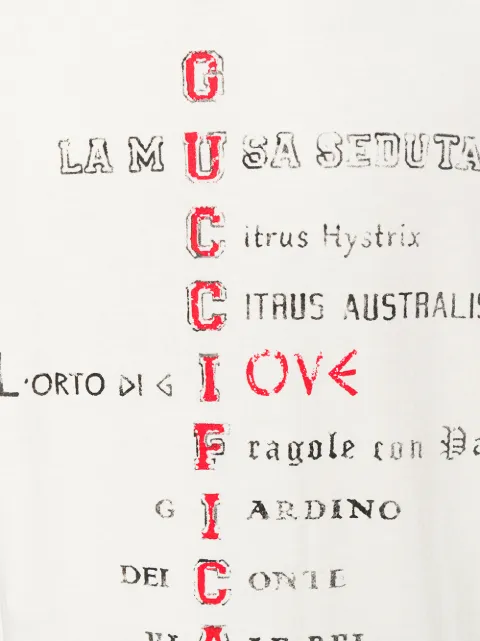 G
LA MUSA SEDUTA
Citrus Hystrix
CITRUS AUSTRALIS
L'ORTO DI GIOVE
Fragole con Pa
GIARDINO
DEI CONTE